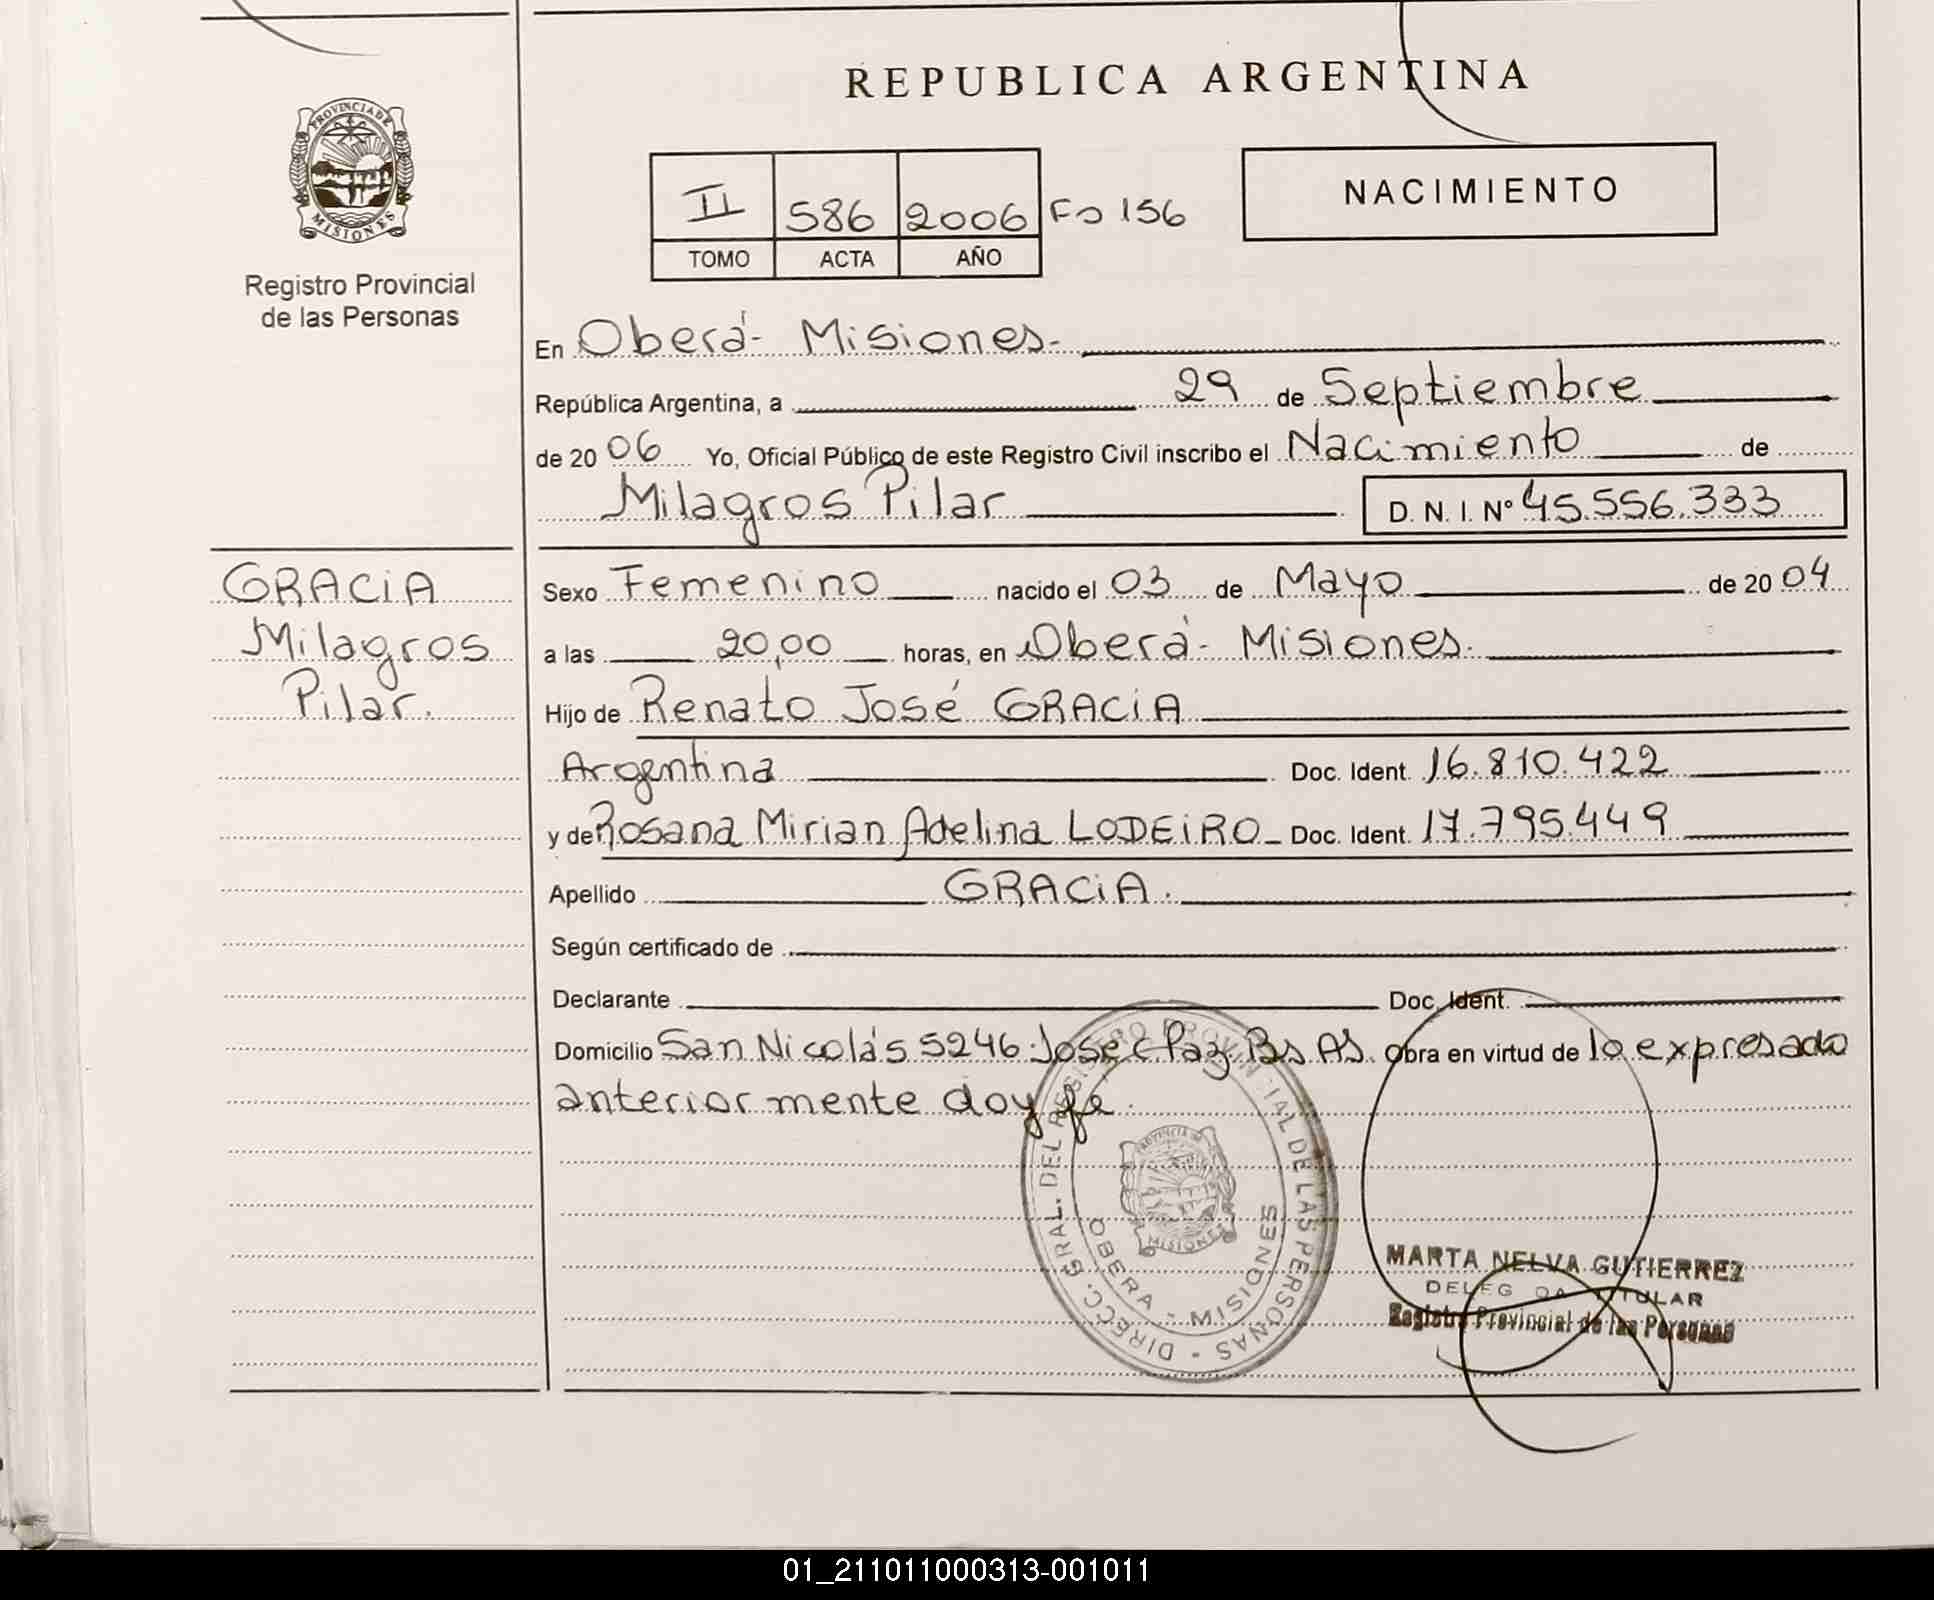 REPUBLICA ARGENTINA
PROVINCIA DE MISIONES
Registro Provincial
de las Personas
II 586 2006 Fo 156
TOMO ACTA AÑO
NACIMIENTO
En Oberá - Misiones.-
República Argentina, a 29 de Septiembre
de 20 06 Yo, Oficial Público de este Registro Civil inscribo el Nacimiento de
Milagros Pilar D. N. I. Nº 45.556.333
GRACIA
Milagros
Pilar.
Sexo Femenino nacido el 03 de Mayo de 20 04
a las 20,00 horas, en Oberá - Misiones.
Hijo de Renato José GRACIA
Argentina Doc. Ident. 16.810.422
y de Rosana Mirian Adelina LODEIRO - Doc. Ident. 17.795.449
Apellido GRACIA.
Según certificado de
Declarante Doc. Ident.
Domicilio San Nicolás 5246 Jose C Paz. Bs As. Obra en virtud de lo expresado
anteriormente doy fe.
DIRECC. GRAL. DEL REGISTRO PROVINCIAL DE LAS PERSONAS -
OBERA - MISIONES
PROVINCIA DE MISIONES
MARTA NELVA GUTIERREZ
TITULAR
Registro Provincial de las Personas
01_211011000313-001011